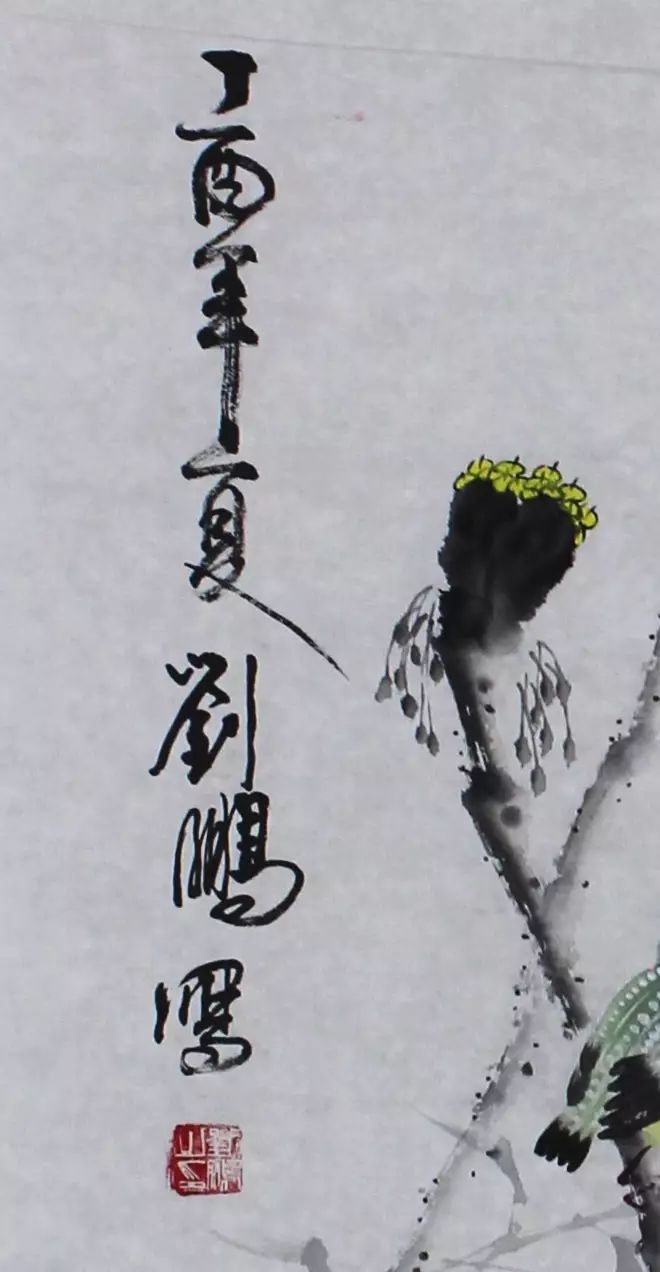 丁酉年夏劉鵬寫